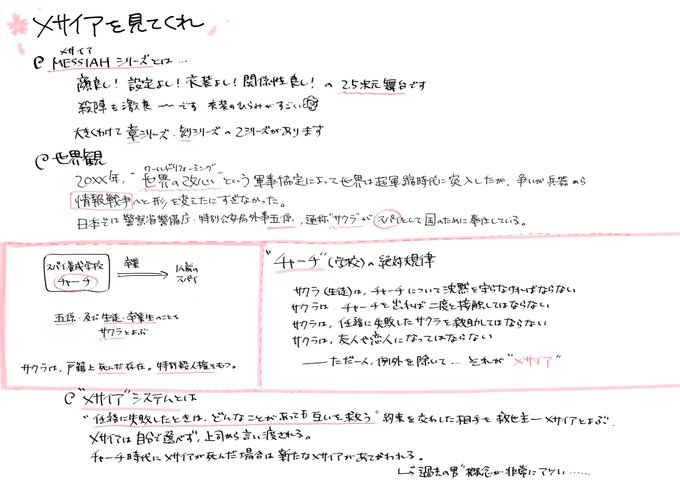 メサイアを見てくれ
メサイア
MESSIAH シリーズとは…
顔良し! 設定よし! 衣装よし! 関係性良し! の 2.5次元舞台です
殺陣も激良〜です 衣装のひらみがすごい
大きくわけて 章シリーズ・刻シリーズの2シリーズがあります
世界観
ワールドリフォーミング
20XX年、"世界の改心"という軍事協定によって世界は超軍縮時代に突入したが、争いが兵器から
情報戦争へと形を変えたにすぎなかった。
日本では警察省警備庁・特別公安局外事五係、通称"サクラ"が スパイとして国のために奉仕している。
スパイ養成学校
チャーチ
卒業
1人前の
スパイ
五係・及び生徒・卒業生のことを
サクラとよぶ
サクラは、戸籍上死んだ存在。特別殺人権をもつ。
"チャーチ"(学校)の絶対規律
サクラ(生徒)は、チャーチについて沈黙を守らなければならない
サクラは、チャーチを出れば二度と接触してはならない
サクラは、任務に失敗したサクラを救助してはならない
サクラは、友人や恋人になってはならない
──ただ一人、例外を除いて… それが"メサイア"
"メサイア"システムとは
"任務に失敗したときは、どんなことがあっても互いを救う"約束を交わした相手を救世主―メサイアとよぶ.
メサイアは自分で選べず、上司から言い渡される。
チャーチ時代にメサイアが死んだ場合は新たなメサイアがあてがわれる。
"過去の男"概念が非常にアツい……